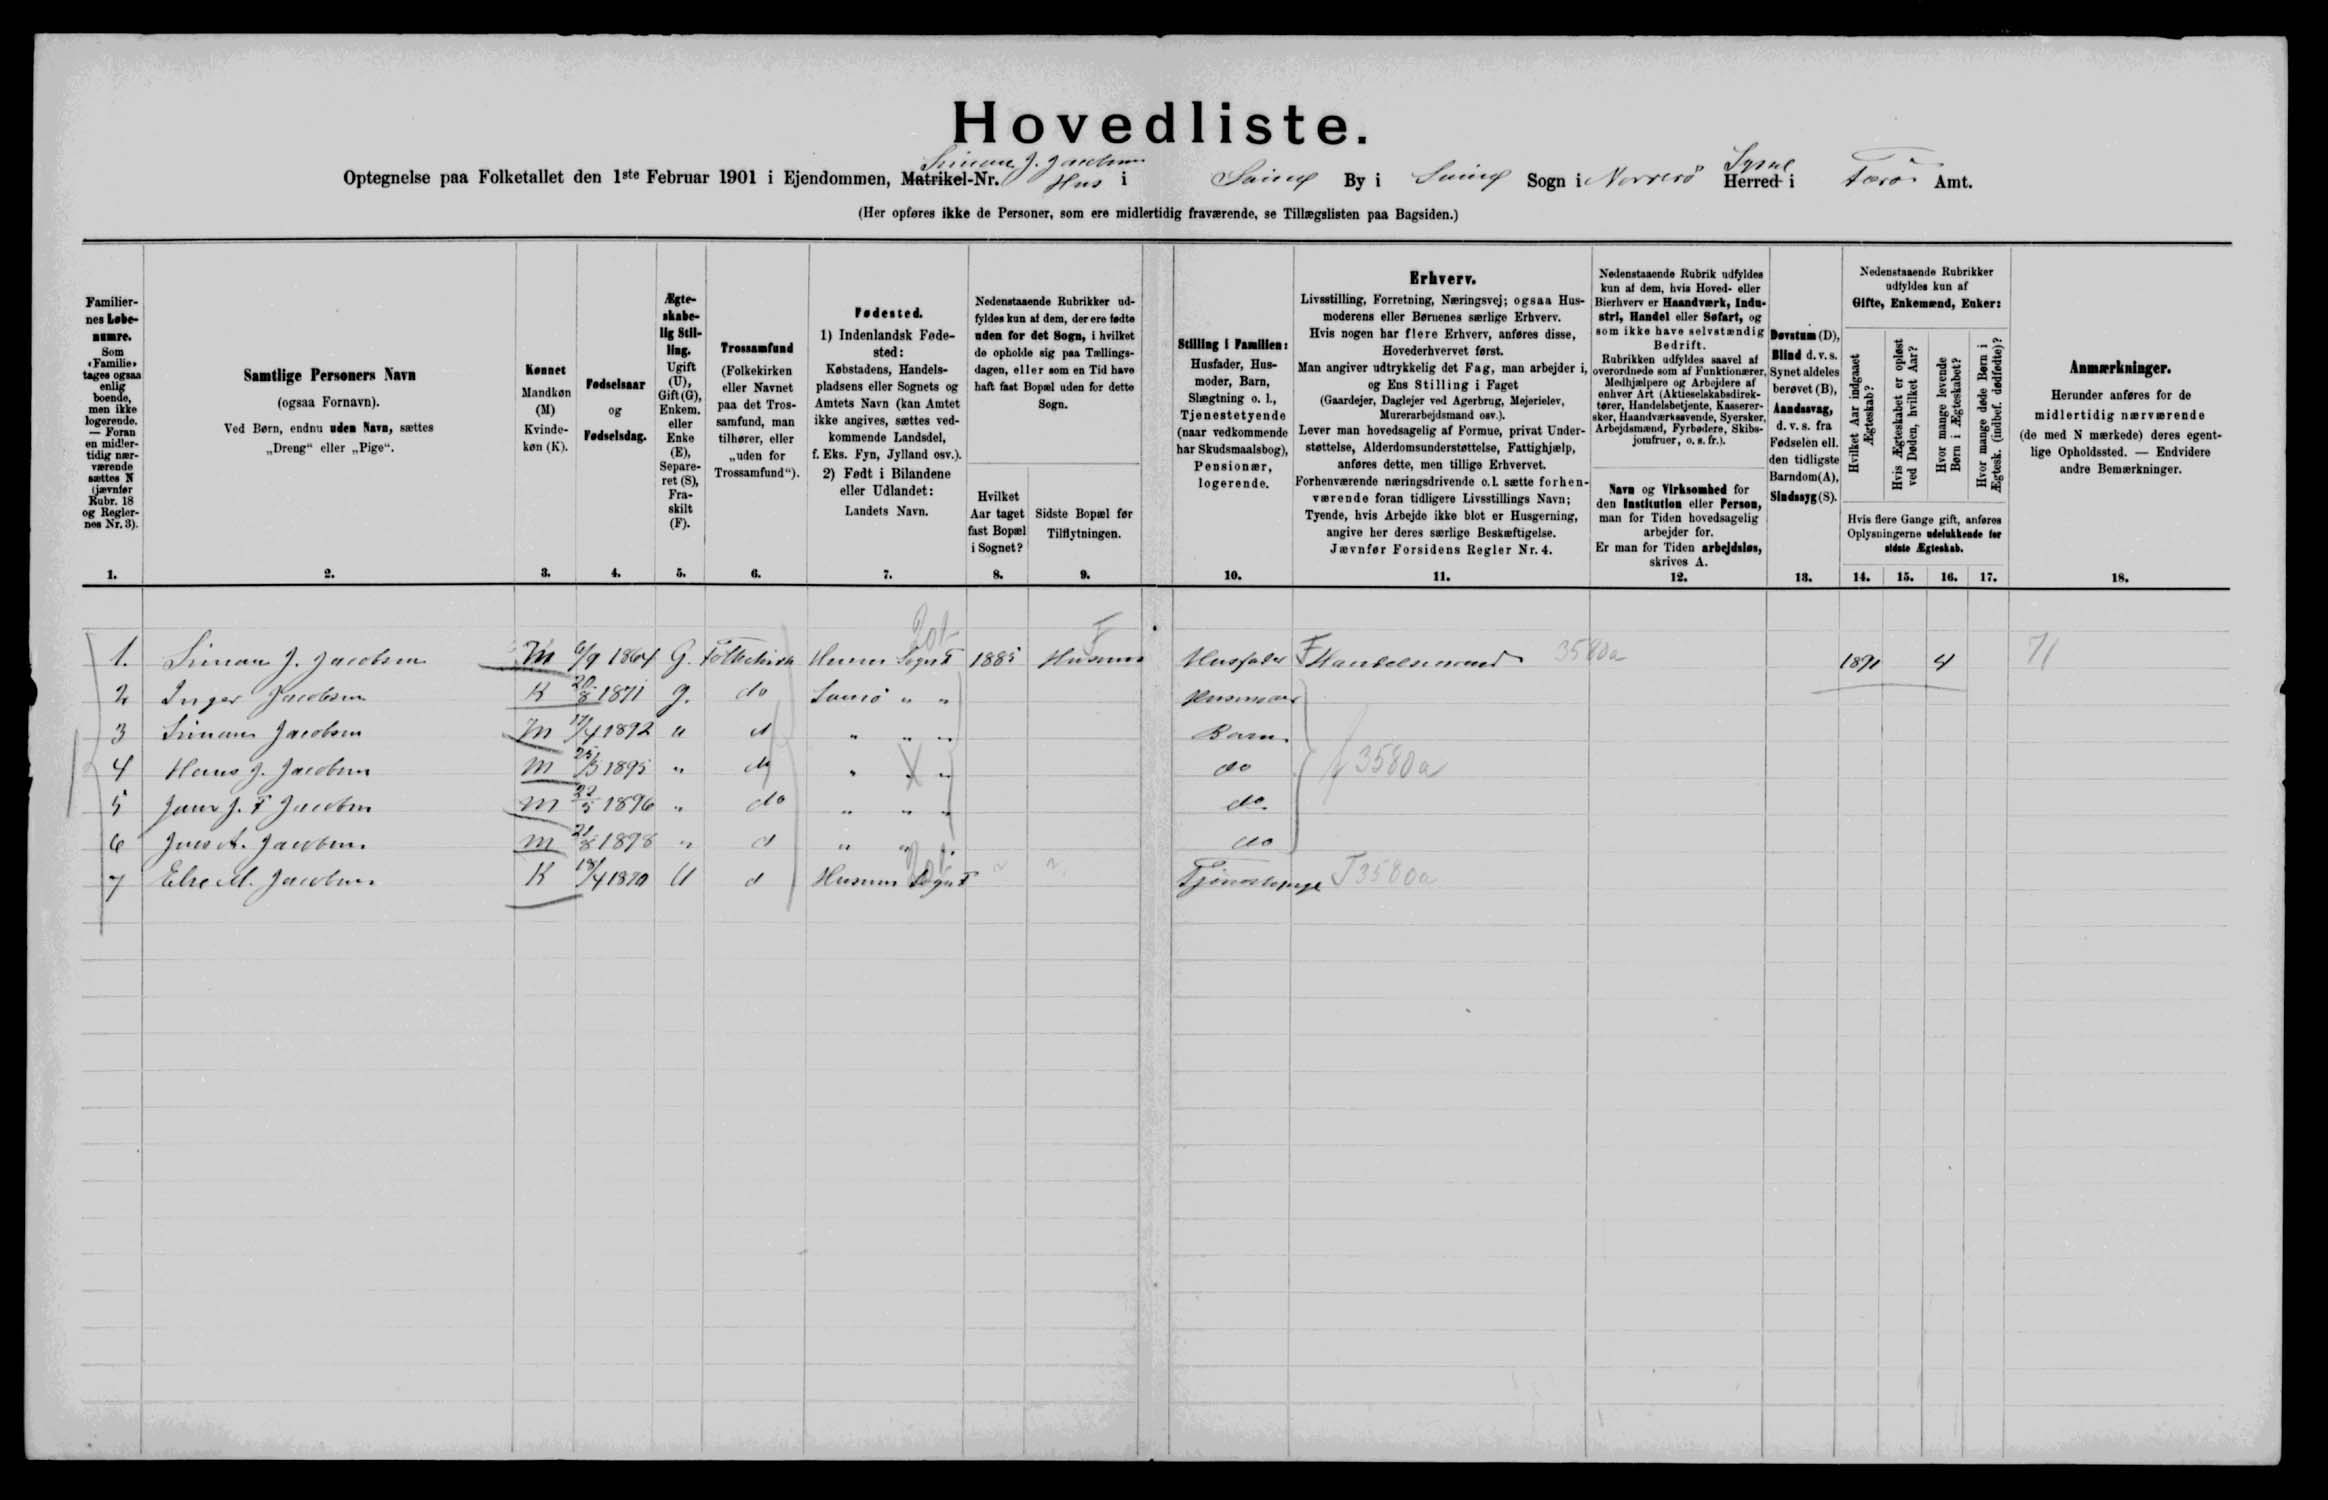 Hovedliste.
Simon J. Jacobsen
Optegnelse paa Folketallet den 1ste Februar 1901 i Ejendommen, Matrikel-Nr. Hus i By i Sogn i Norrerø Herred Sysul i Færø Amt.
(Her opføres ikke de Personer, som ere midlertidig fraværende, se Tillægslisten paa Bagsiden.)
Familier-
nes Løbe-
numre.
Som
«Familie»
tages ogsaa
enlig
boende,
men ikke
logerende.
— Foran
en midler-
tidig nær-
værende
sættes N
(jævnfør
Rubr. 18
og Regler-
nes Nr. 3).
1.
Samtlige Personers Navn
(ogsaa Fornavn).
Ved Børn, endnu uden Navn, sættes
„Dreng“ eller „Pige“.
2.
Kønnet
Mandkøn
(M)
Kvinde-
køn (K).
3.
Fødselsaar
og
Fødselsdag.
4.
Ægte-
skabe-
lig Stil-
ling.
Ugift
(U),
Gift (G),
Enkem.
eller
Enke
(E),
Separe-
ret (S),
Fra-
skilt
(F).
5.
Trossamfund
(Folkekirken
eller Navnet
paa det Tros-
samfund, man
tilhører, eller
„uden for
Trossamfund“).
6.
Fødested.
1) Indenlandsk Føde-
sted:
Købstadens, Handels-
pladsens eller Sognets og
Amtets Navn (kan Amtet
ikke angives, sættes ved-
kommende Landsdel,
f. Eks. Fyn, Jylland osv.).
2) Født i Bilandene
eller Udlandet:
Landets Navn.
7.
Nedenstaaende Rubrikker ud-
fyldes kun af dem, der ere fødte
uden for det Sogn, i hvilket
de opholde sig paa Tællings-
dagen, eller som en Tid have
haft fast Bopæl uden for dette
Sogn.
Hvilket
Aar taget
fast Bopæl
i Sognet?
8.
Sidste Bopæl før
Tilflytningen.
9.
Stilling i Familien:
Husfader, Hus-
moder, Barn,
Slægtning o. l.,
Tjenestetyende
(naar vedkommende
har Skudsmaalsbog),
Pensionær,
logerende.
10.
Erhverv.
Livsstilling, Forretning, Næringsvej; ogsaa Hus-
moderens eller Børnenes særlige Erhverv.
Hvis nogen har flere Erhverv, anføres disse,
Hovederhvervet først.
Man angiver udtrykkelig det Fag, man arbejder i,
og Ens Stilling i Faget
(Gaardejer, Daglejer ved Agerbrug, Mejerielev,
Murerarbejdsmand osv.).
Lever man hovedsagelig af Formue, privat Under-
støttelse, Alderdomsunderstøttelse, Fattighjælp,
anføres dette, men tillige Erhvervet.
Forhenværende næringsdrivende o. l. sætte forhen-
værende foran tidligere Livsstillings Navn;
Tyende, hvis Arbejde ikke blot er Husgerning,
angive her deres særlige Beskæftigelse.
Jævnfør Forsidens Regler Nr. 4.
11.
Nedenstaaende Rubrik udfyldes
kun af dem, hvis Hoved- eller
Bierhverv er Haandværk, Indu-
stri, Handel eller Søfart, og
som ikke have selvstændig
Bedrift.
Rubrikken udfyldes saavel af
overordnede som af Funktionærer,
Medhjælpere og Arbejdere af
enhver Art (Aktieselskabsdirek-
tører, Handelsbetjente, Kasserer-
sker, Haandværkssvende, Syersker,
Arbejdsmænd, Fyrbødere, Skibs-
jomfruer, o. s. fr.).
Navn og Virksomhed for
den Institution eller Person,
man for Tiden hovedsagelig
arbejder for.
Er man for Tiden arbejdsløs,
skrives A.
12.
Døvstum (D),
Blind d. v. s.
Synet aldeles
berøvet (B),
Aandssvag,
d. v. s. fra
Fødselen ell.
den tidligste
Barndom (A),
Sindssyg (S).
13.
Nedenstaaende Rubrikker
udfyldes kun af
Gifte, Enkemænd, Enker:
Hvilket Aar indgaaet
Ægteskab?
Hvis Ægteskabet er opløst
ved Døden, hvilket Aar?
Hvor mange levende
Børn i Ægteskabet?
Hvor mange døde Børn i
Ægtesk. (indbef. dødfødte)?
Hvis flere Gange gift, anføres
Oplysningerne udelukkende for
sidste Ægteskab.
14. 15. 16. 17.
Anmærkninger.
Herunder anføres for de
midlertidig nærværende
(de med N mærkede) deres egent-
lige Opholdssted. — Endvidere
andre Bemærkninger.
18.
1. Simon J. Jacobsen M 6/9 1864 G. Folkekirk Sogn F 1885 Husum Husfader F Handelsmand 3580a 1891 4 71
2 Inger Jacobsen K 20/8 1871 g. do " " Husmoder
3 Simon Jacobsen M 17/4 1892 u d " " " Barn
4 Hans J. Jacobsen M 1895 " do " " " do 3580a
5 J. F Jacobsen M 22/5 1896 " do " " " do
6 Jacobsen M 1898 " d " " " do
7 Else M. Jacobsen K 18/4 1880 U d Husum Sogn F F 3580a